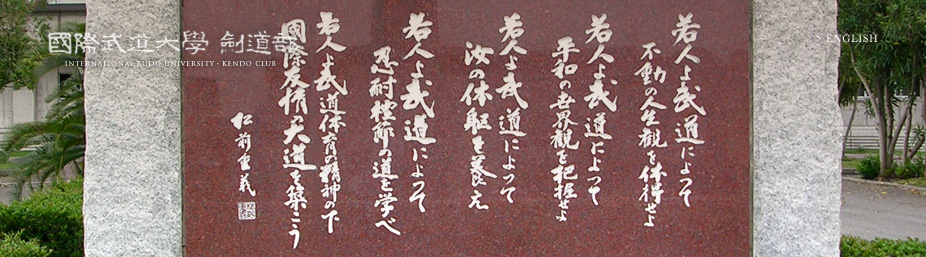 國際武道大學 剣道部
INTERNATIONAL BUDO UNIVERSITY · KENDO CLUB
> ENGLISH
若人よ武道によって
不動の人生観を体得せよ
若人よ武道によって
平和の世界観を把握せよ
若人よ武道によって
汝の体躯を養え
若人よ武道によって
忍耐禮節の道を学べ
若人よ武道体育の精神の下
國際友情の大道を築こう
松前重義